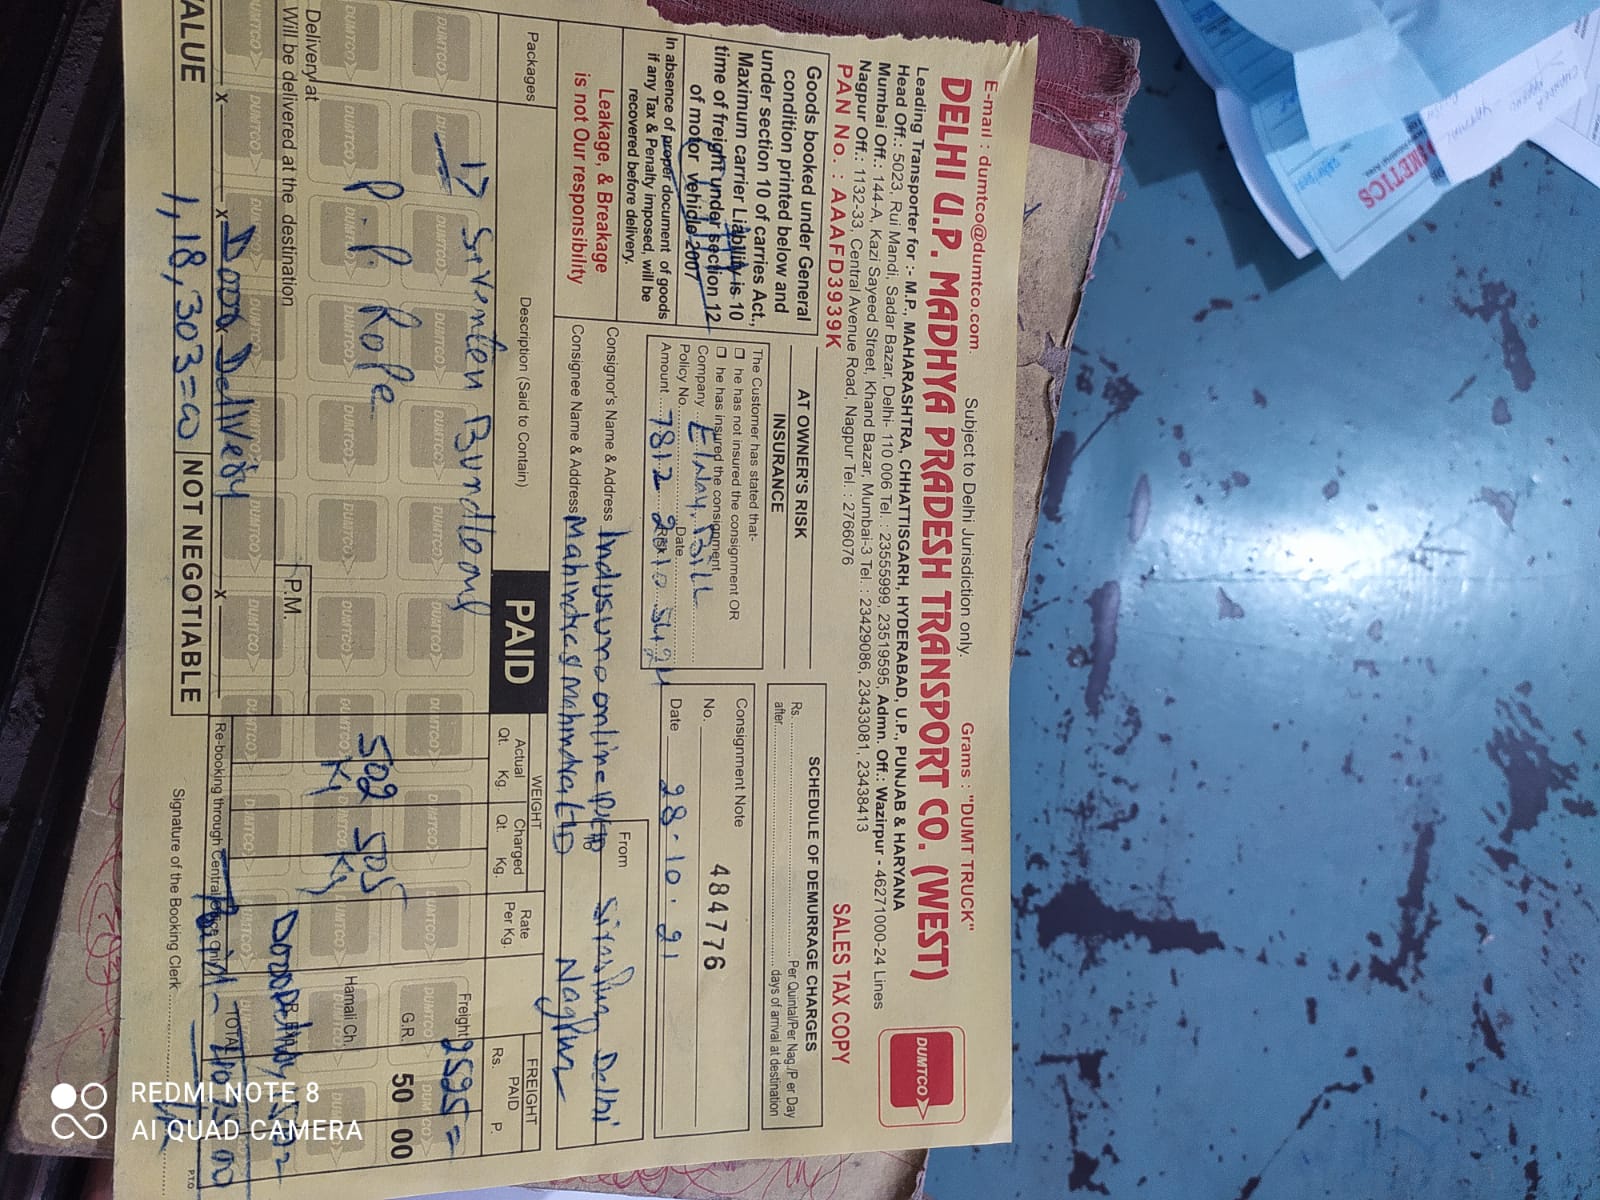 E-mail : dumtco@dumtco.com. Subject to Delhi Jurisdiction only. Grams : "DUMT TRUCK"
DELHI U.P. MADHYA PRADESH TRANSPORT CO. (WEST)
Leading Transporter for :- M.P., MAHARASHTRA, CHHATTISGARH, HYDERABAD, U.P., PUNJAB & HARYANA
Head Off.: 5023, Rui Mandi, Sadar Bazar, Delhi- 110 006 Tel. : 23555999, 23519595, Admn. Off.: Wazirpur - 46271000-24 Lines
Mumbai Off.: 144-A, Kazi Sayeed Street, Khand Bazar, Mumbai-3 Tel. : 23429086, 23433081, 23438413
Nagpur Off.: 1132-33, Central Avenue Road, Nagpur Tel. : 2766076
DUMTCO
PAN No. : AAAFD3939K
SALES TAX COPY
Goods booked under General
condition printed below and
under section 10 of carries Act.,
Maximum carrier Liability is 10
time of freight under section 12
of motor vehicle 2007
In absence of proper document of goods
if any Tax & Penalty imposed, will be
recovered before delivery.
Leakage, & Breakage
is not Our responsibility
AT OWNER'S RISK
INSURANCE
The Customer has stated that-
he has not insured the consignment OR
he has insured the consignment
Company
Policy No. Date
Amount 7812 2810 5424 Risk
SCHEDULE OF DEMURRAGE CHARGES
Rs. Per Quintal/Per Nag./P er Day
after days of arrival at destination
Consignment Note
No. 484776
Date 28.10.21
Consignor's Name & Address
From Delhi
Consignee Name & Address Mahindra & Mahindra LTD Nagpur
Packages
Description (Said to Contain)
PAID
WEIGHT
Actual
Qt. Kg.
Charged
Qt. Kg.
Rate
Per Kg.
FREIGHT
PAID
Rs. P.
17 Seventen Bundl only
P.P. Rope
502 Kg
505 Kg
Freight 2525=
G.R. 50 00
Hamali Ch.
Delivery at
Will be delivered at the destination
P.M.
Door Delivery
TOTAL
Re-booking through Central
VALUE 1,18,303=00
NOT NEGOTIABLE
Signature of the Booking Clerk
P.T.O.
REDMI NOTE 8
AI QUAD CAMERA